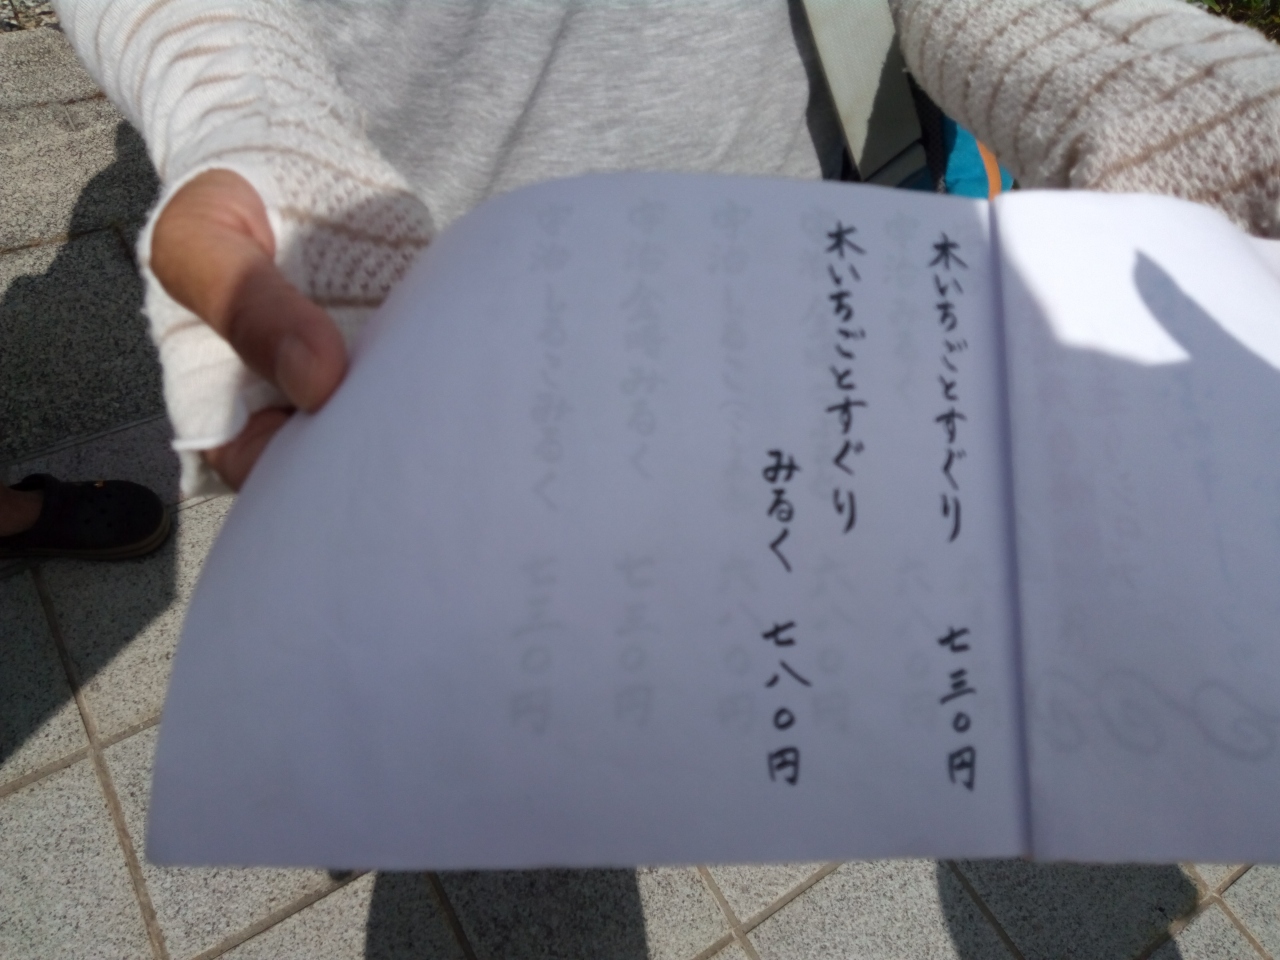 木いちごとすぐり 七三〇円
木いちごとすぐり
みるく 七八〇円